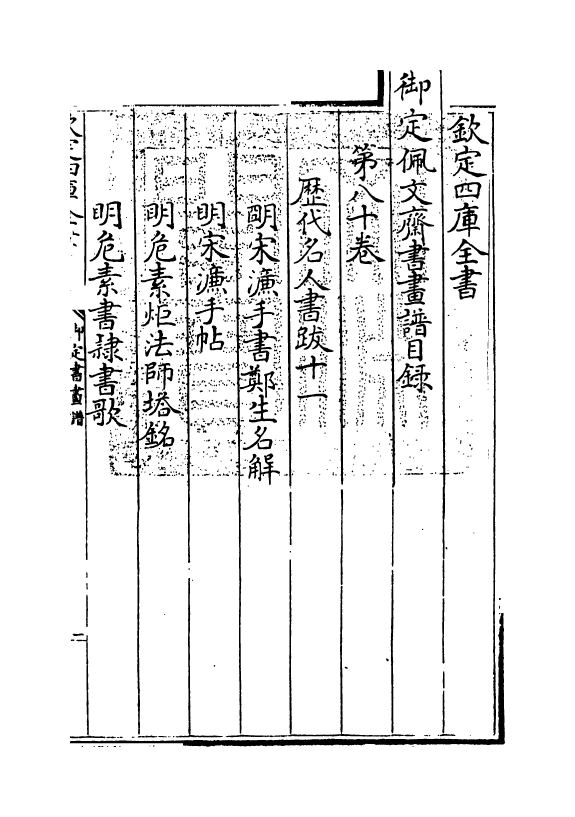 欽定四庫全書
御定佩文齋書畫譜目録
第八十卷
歷代名人書跋十一
明宋濂手書鄭生名解
明宋濂手帖
明危素炬法師塔銘
明危素書隷書歌
御定書畫譜